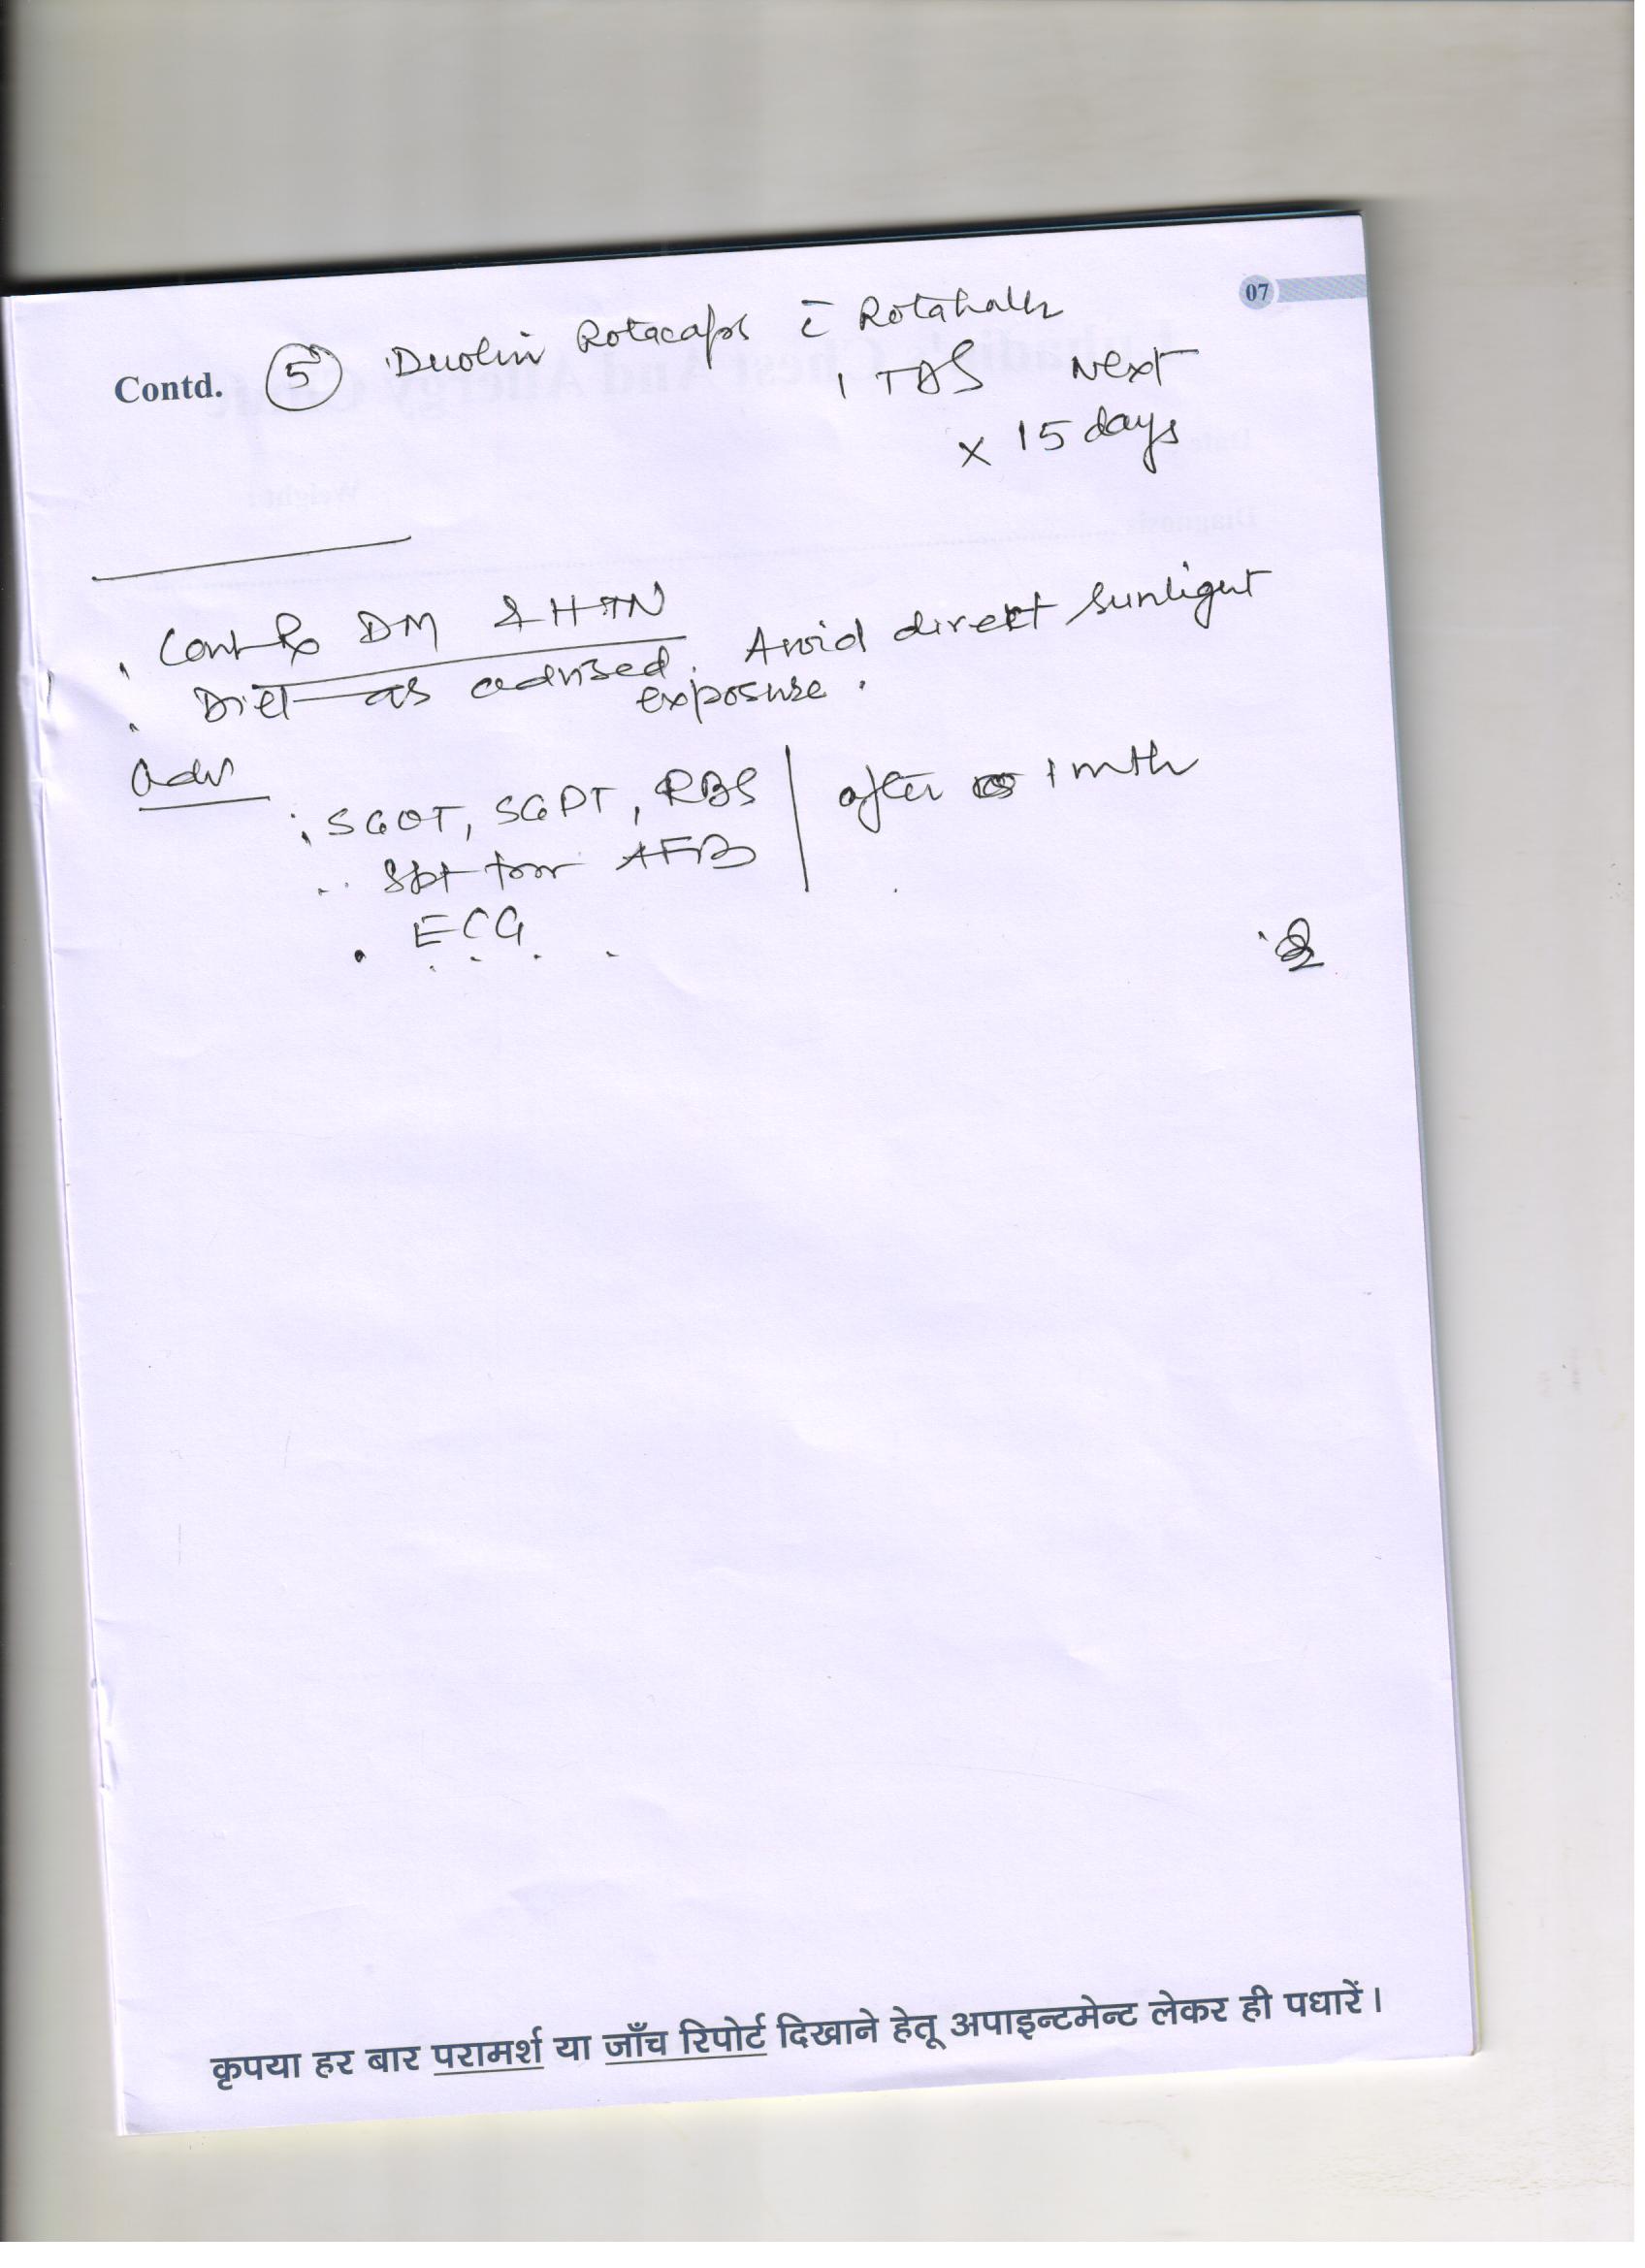 07
Contd. ⑤ Duolin Rotacaps c̄ Rotahaler
1 TDS Next
x 15 days
. Cont Rx DM & HTN
. Diet as advised. Avoid direct sunlight
exposure.
Adv
: SGOT, SGPT, RBS | after 1 mth
.. Spt for AFB
. ECG
कृपया हर बार परामर्श या जाँच रिपोर्ट दिखाने हेतू अपाइन्टमेन्ट लेकर ही पधारें।